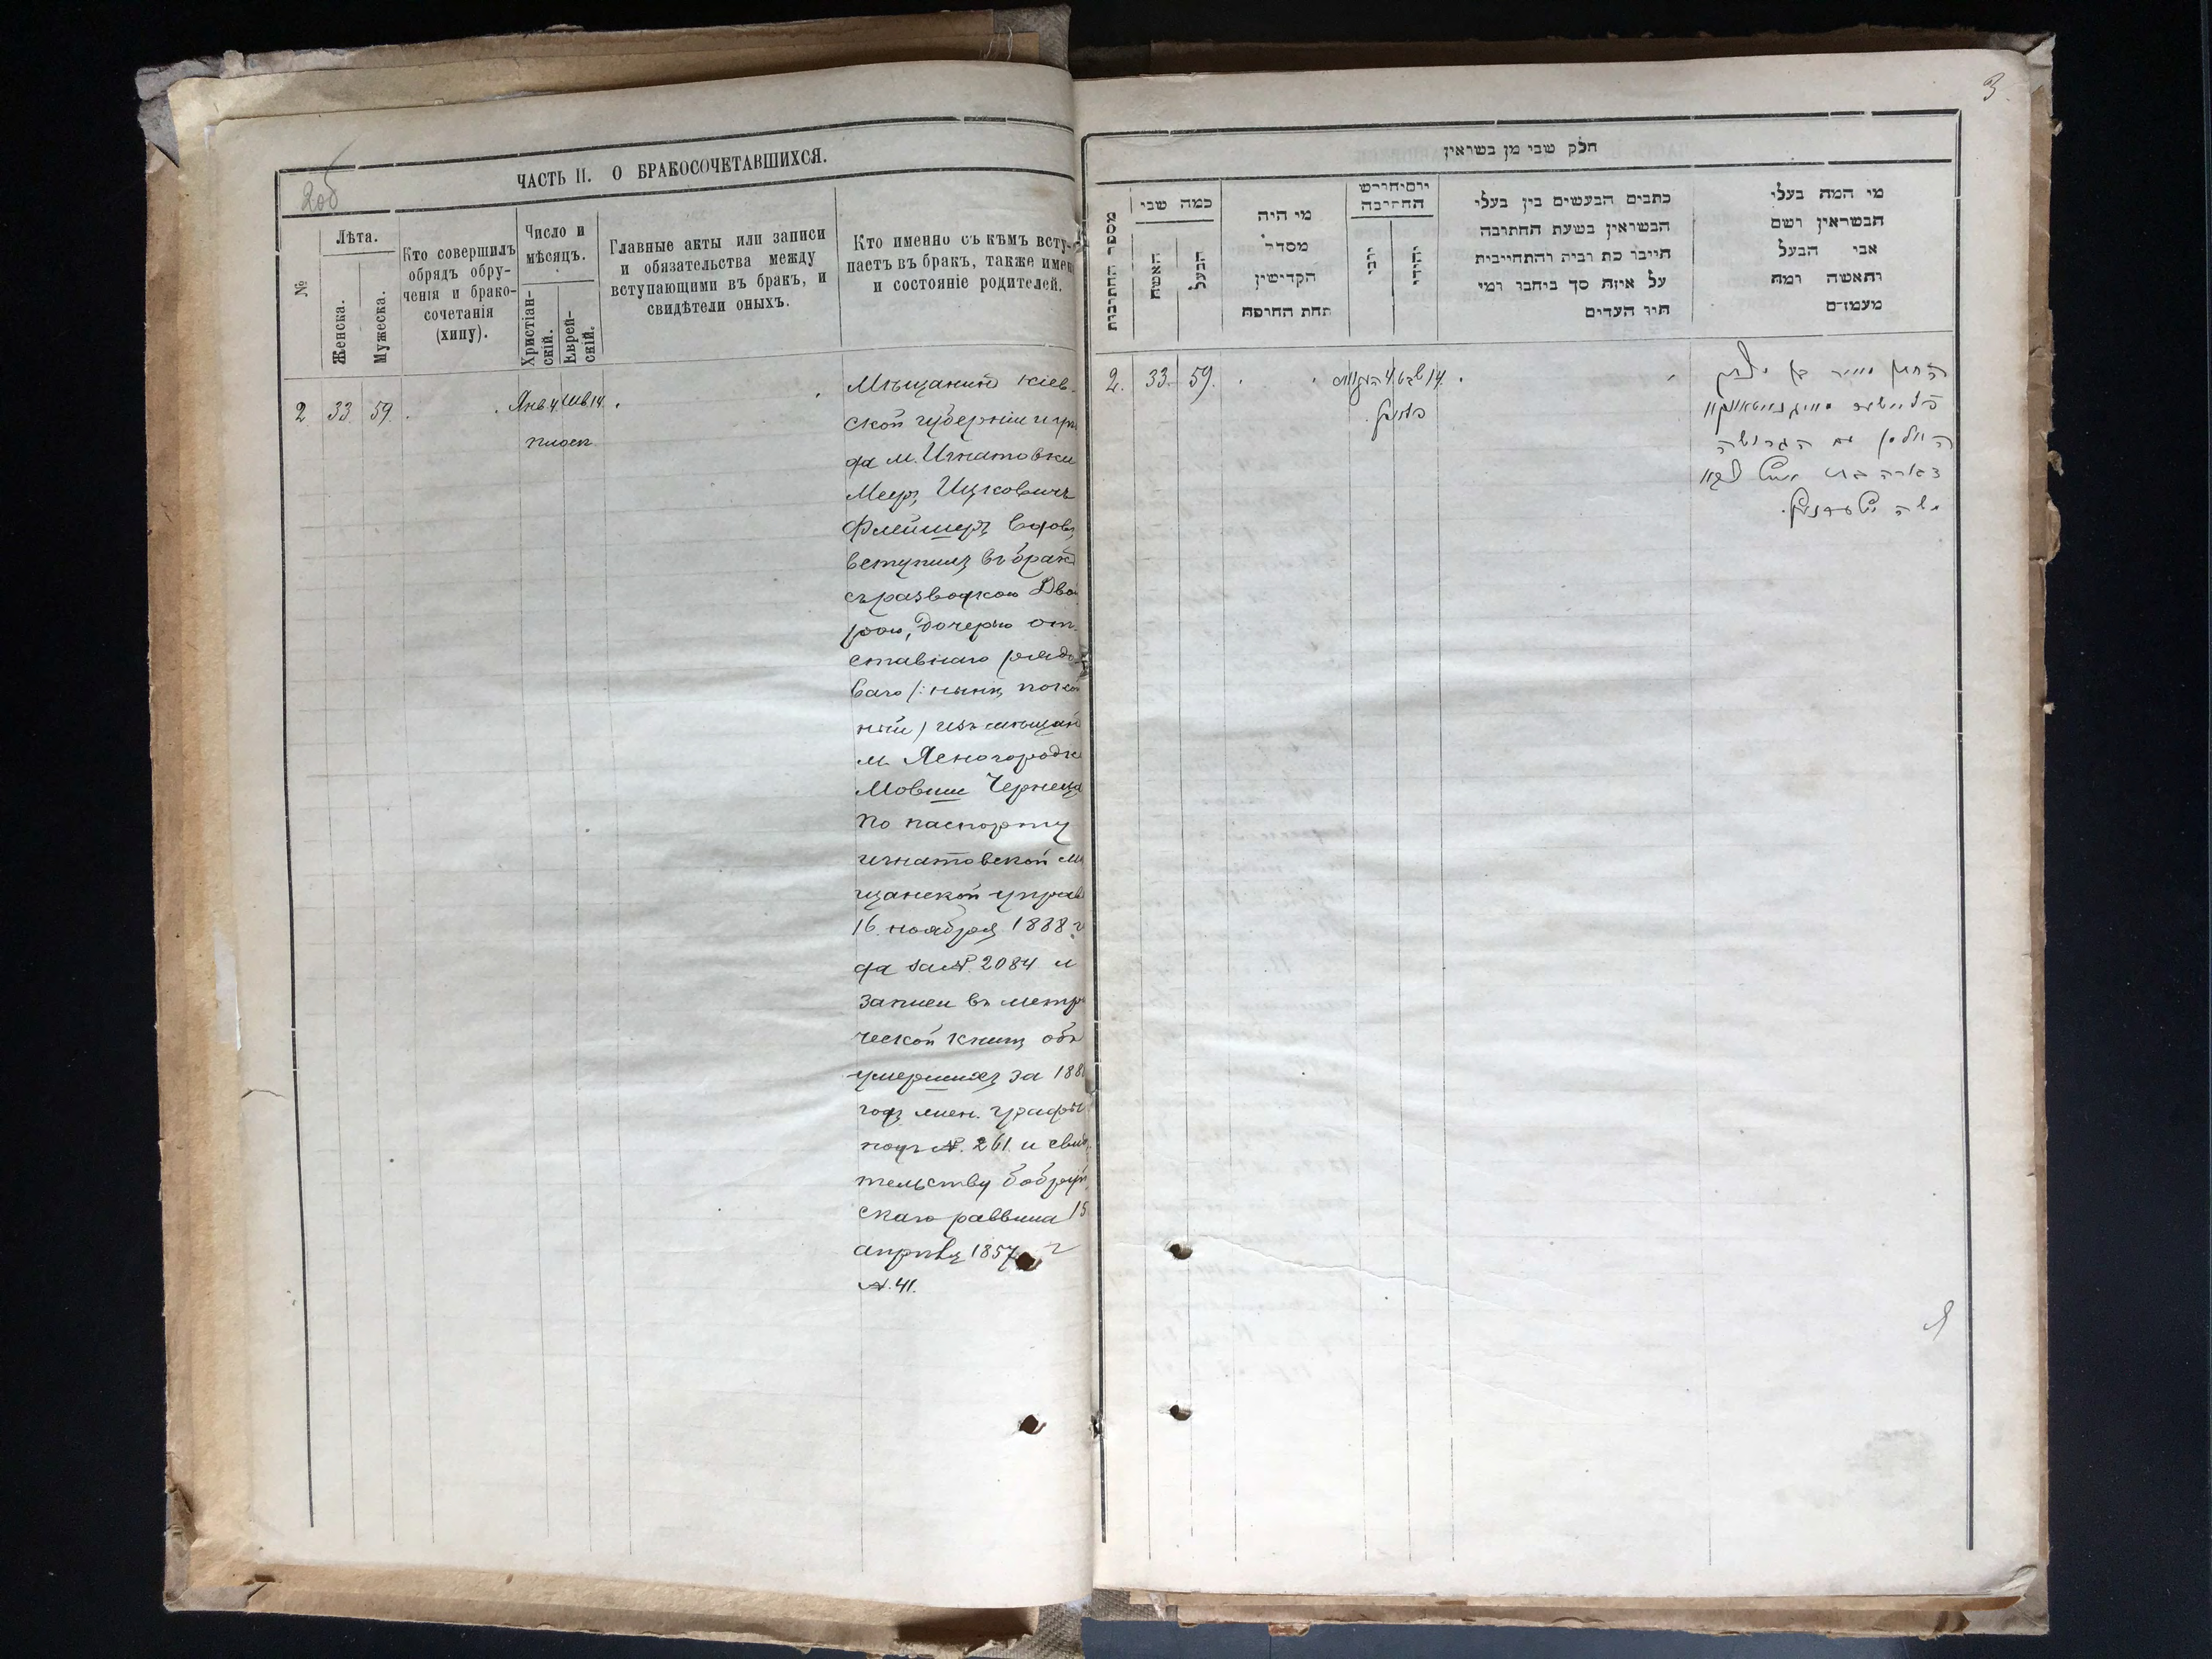 2об
ЧАСТЬ II. О БРАКОСОЧЕТАВШИХСЯ.
№
Лѣта.
Женска.
Мужеска.
Кто совершилъ
обрядъ обру-
ченія и брако-
сочетанія
(хипу).
Число и
мѣсяцъ.
Христіан-
скій.
Еврей-
скій.
Главные акты или записи
и обязательства между
вступающими въ бракъ, и
свидѣтели оныхъ.
Кто именно съ кѣмъ всту-
паетъ въ бракъ, также имен
и состояніе родителей.
2 33 59. Янв 4 Шв 14
Мѣщанинъ Кіев-
ской губерніи и уѣз
да м. Игнатовки
Меер Ицковичъ
Флейшеръ вдовъ
вступилъ въ бракъ
съ разводкою Дво
рою, дочерью от-
ставнаго рядо
ваго /: нынѣ покой
ный / изъ мѣщан
м. Ясногородк
Мовши Чернеца
По паспорту
игнатовской мѣ
щанской управ
16 ноября 1888 г
да за №. 2084 и
записи въ метри
ческой книгѣ объ
умершихъ за 188
годъ жен. графы
подъ №. 261. и свидѣ
тельству бобруй
скаго раввина 15
апрѣля 1857 г
№. 41.
3.
חלק שני מן נשואין
מספר החתונות
כמה שני
האשה
הבעל
מי היה
מסדר
הקדושין
תחת החופה
יום וחודש
החתונה
נוצרי
יהודי
כתבים הנעשים בין בעלי
הנשואין בשעת החתונה
חיובו כת וביה והתחייבות
על איזה סך ביחבו ומי
היו העדים
מי המה בעלי
הנשואין ושם
אבי הבעל
והאשה ומה
מעמדם
2. 33. 59. 4 14 שבט
החתן מאיר בן יצחק
פליישער מאיגנאטאווקא
האלמן עם הגרושה